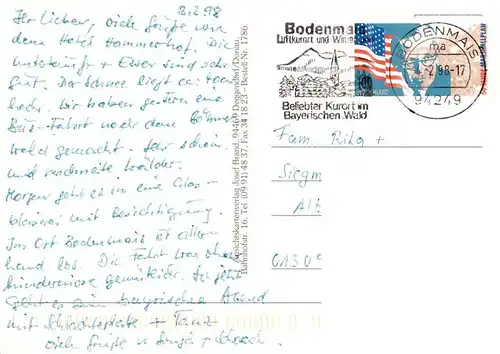 2.2.98
Ihr Lieben, viele Grüße von
dem Hotel Hammerhof. Die
Unterkunft + Essen sind sehr
gut. Der Schnee liegt ca 1oo
hoch. Wir haben gestern eine
Bus-Fahrt nach dem Böhmer
wald gemacht. Sehr schön
und verschneite Wälder.
Morgen geht es in eine Glas-
bläserei mit Besichtigung.
Im Ort Bodenmais ist aller-
hand los. Die Fahrt war ohne
Hindernisse gemeistert. So jetzt
geht es zum bayrischen Abend
mit Schlachtplatte + Tanz
viele Grüße v.
Ansichtskartenverlag Josef Brand, 94469 Deggendorf/Donau,
Bahnhofstr. 16, Tel (09 91) 48 37, Fax 34 18 23 - Bestell-Nr. 1786
Bodenmais
Luftkurort und
Beliebter Kurort im
Bayerischen Wald
BODENMAIS
ma
-2.98-17
94249
Fam. Rita +
Siegm
Alt
0130